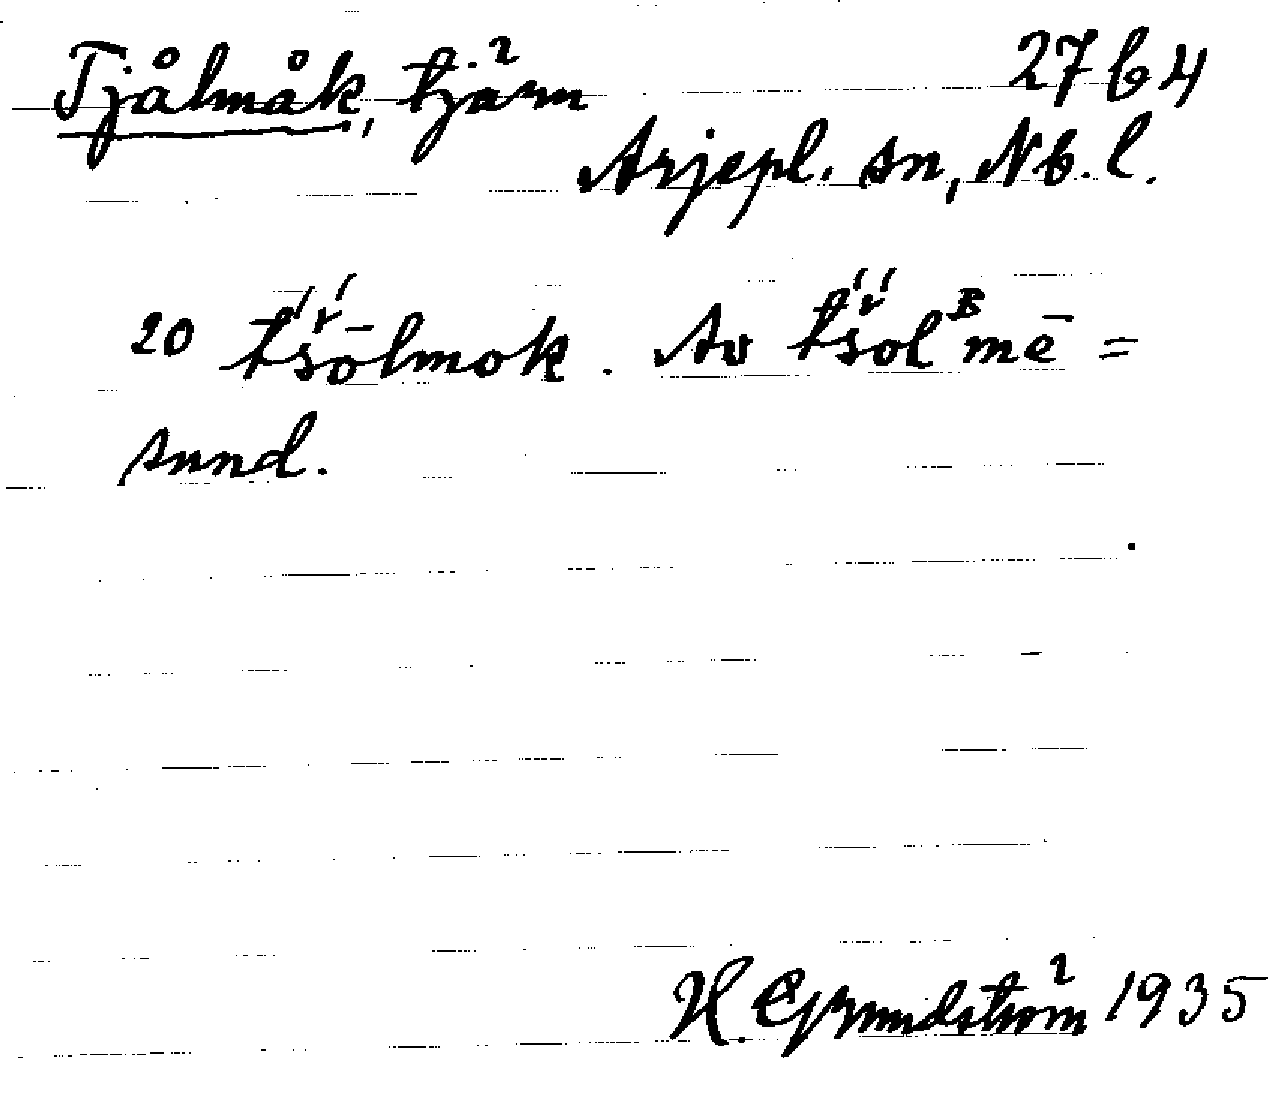 Tjålmåk, tjärn 27 b 4
Arjepl. sn, Nb. l.
20 t́š́ōlmok. Av t́š́olᴮmē =
sund.
H. Grundström 1935